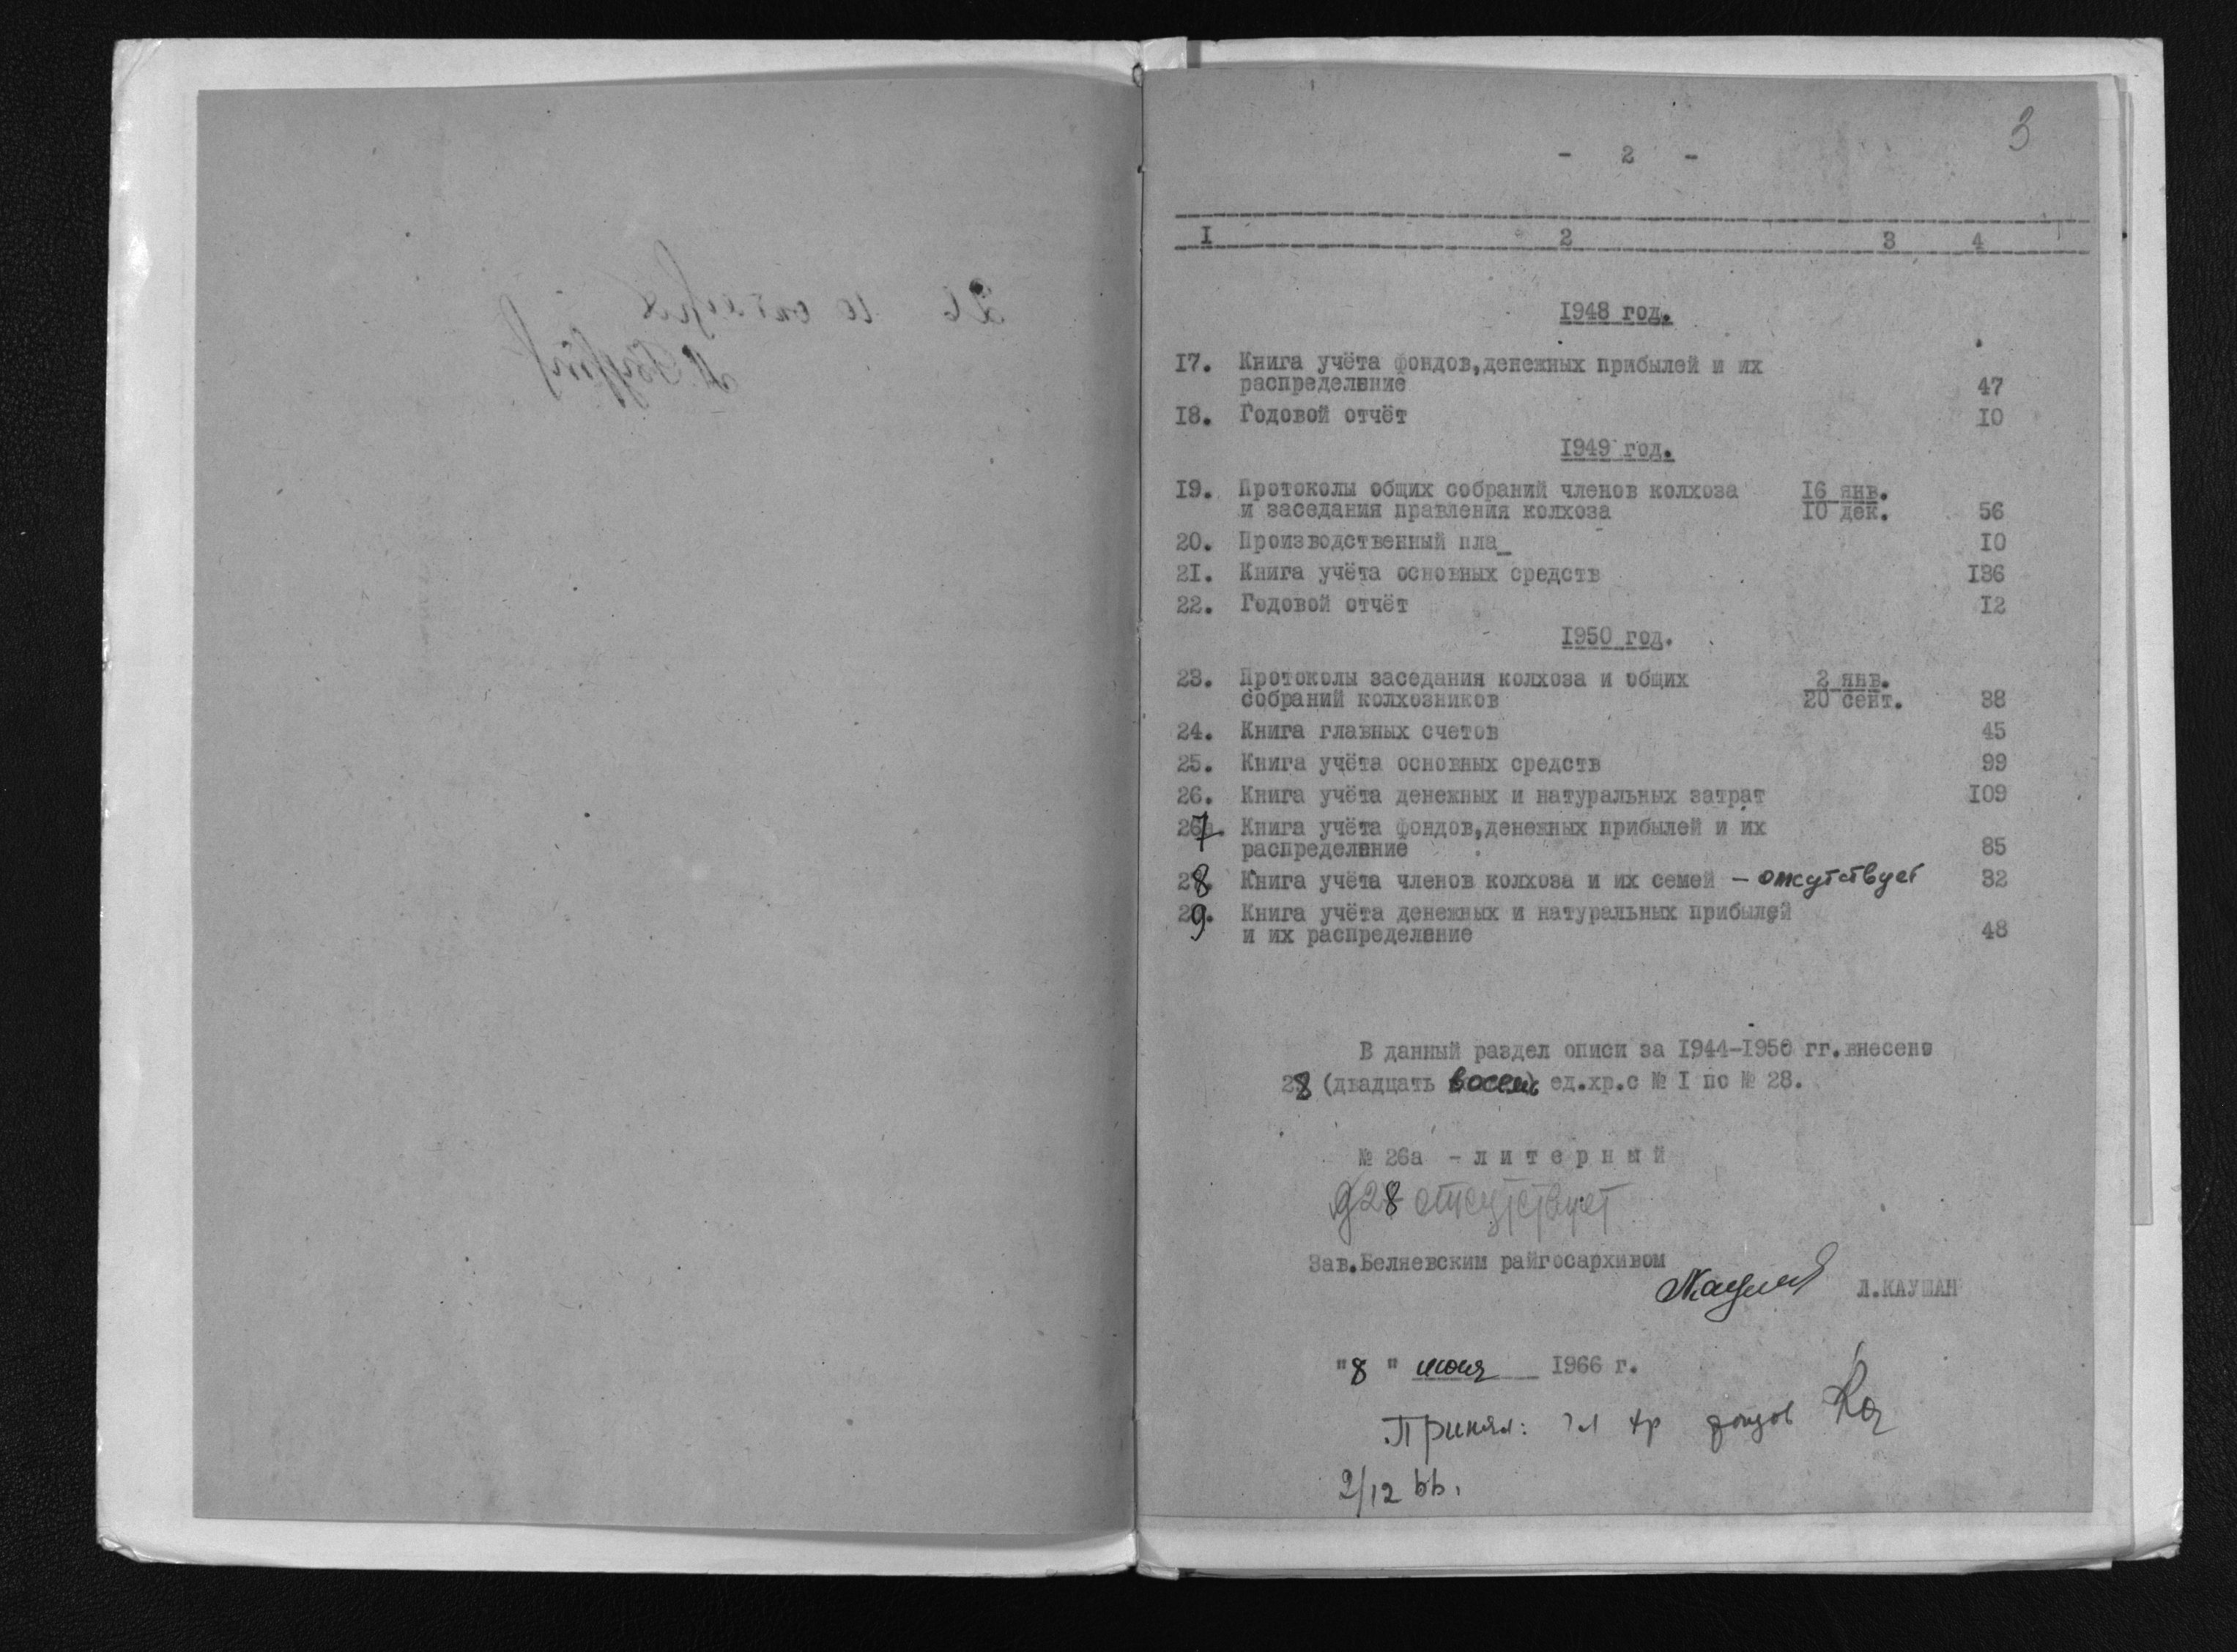 3
- 2 -
I 2 3 4
1948 год.
17. Книга учёта фондов,денежных прибылей и их
распределение 47
18. Годовой отчёт 10
1949 год.
19. Протоколы общих собраний членов колхоза 16 янв.
и заседания правления колхоза 10 дек. 56
20. Производственный пла_ 10
21. Книга учёта основных средств 136
22. Годовой отчёт 12
1950 год.
23. Протоколы заседания колхоза и общих 2 янв.
собраний колхозников 20 сент. 38
24. Книга главных счетов 45
25. Книга учёта основных средств 99
26. Книга учёта денежных и натуральных затрат 109
27 Книга учёта фондов,денежных прибылей и их
распределение 85
28. Книга учёта членов колхоза и их семей - отсутствует 32
29. Книга учёта денежных и натуральных прибылей
и их распределение 48
В данный раздел описи за 1944-1950 гг.внесено
28 (двадцать восемь) ед.хр.с № I по № 28.
№ 26а - литерный
28 отсутствует
Зав.Беляевским райгосархивом
Л.КАУШАН
"8" июня 1966 г.
Принял: гл хр фондов
2/12 66.